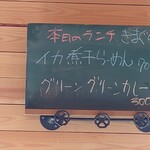 本日のランチ きまぐ
イカ煮干らーめん 70
グリーン グリーンカレー
500